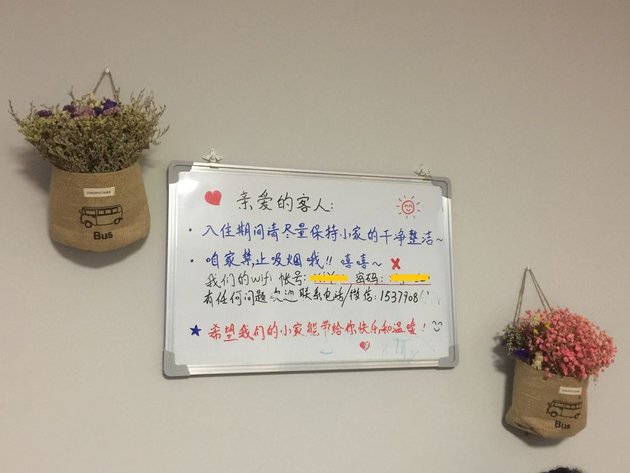 亲爱的客人:
·入住期间请尽量保持小家的干净整洁~
·咱家禁止吸烟哦!! 嘻嘻~
我们的wifi 帐号: 密码:
有任何问题欢迎联系电话/微信: 1537908
★希望我们的小家能带给你快乐和温暖!
Bus
Bus